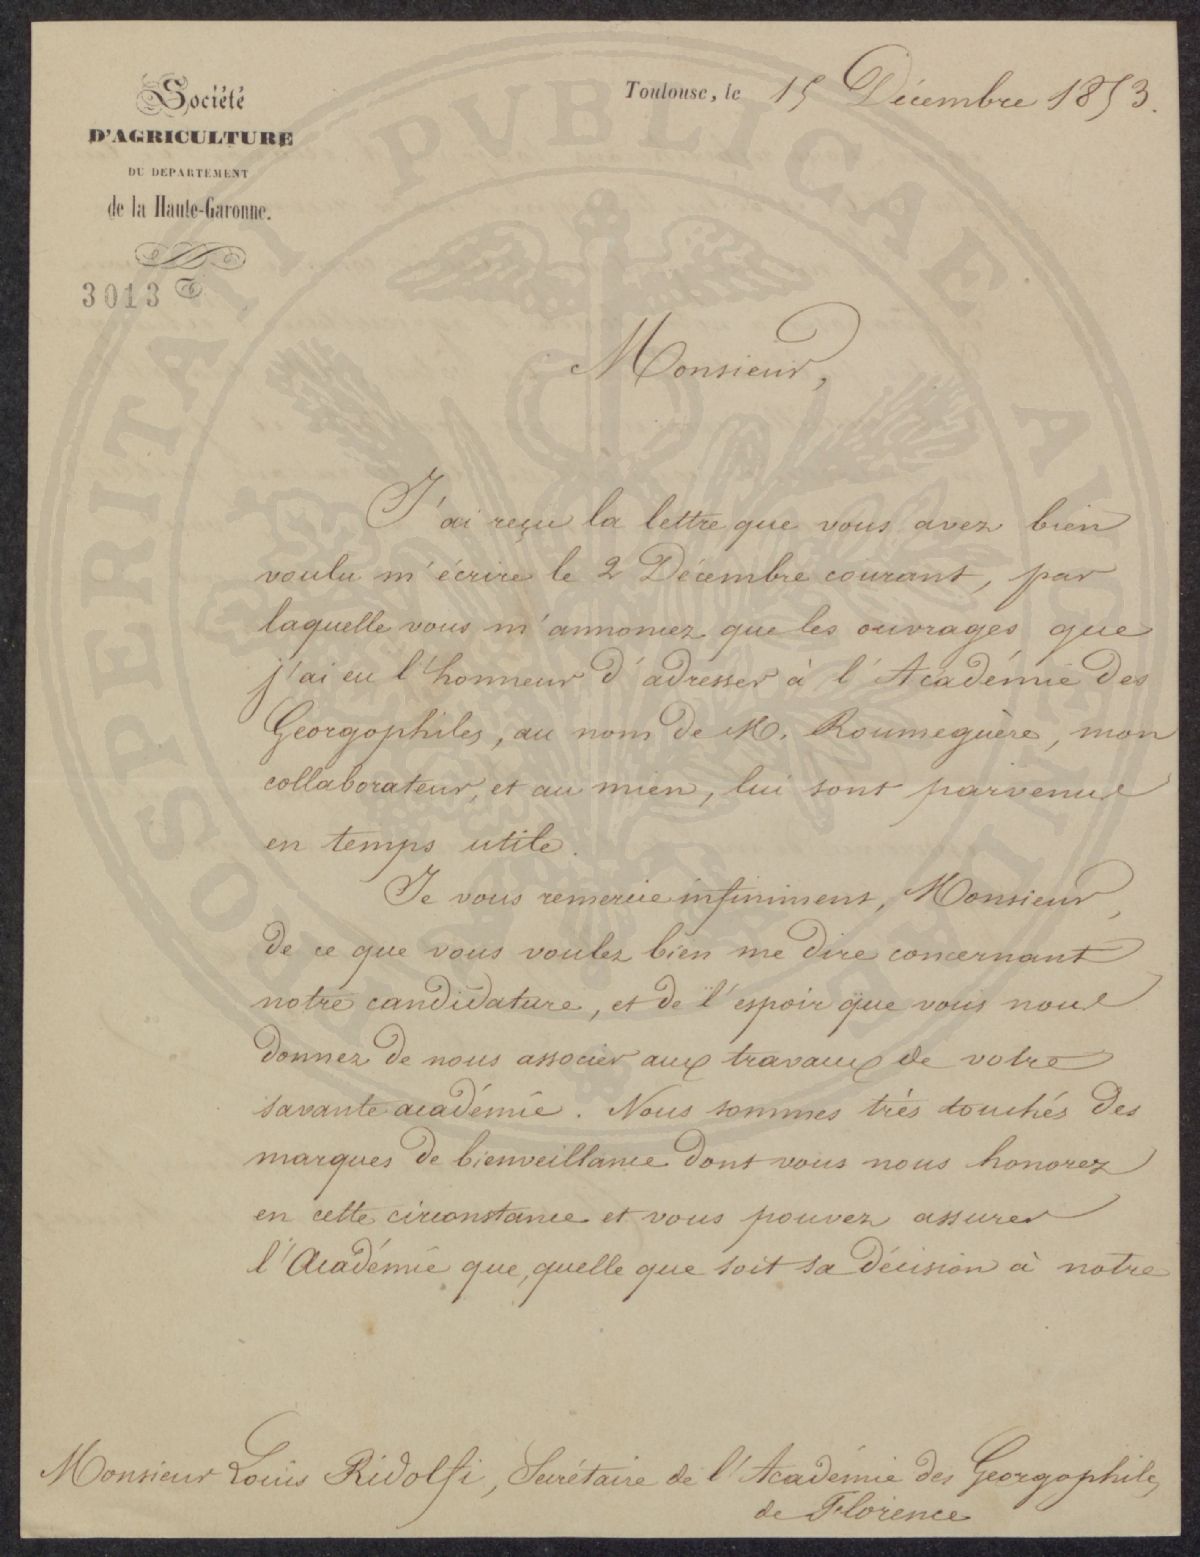 Société
D'AGRICULTURE
DU DEPARTEMENT
de la Haute-Garonne.
3013
Toulouse, le 15 Décembre 1853.
Monsieur,
J'ai reçu la lettre que vous avez bien
voulu m'écrire le 2 Décembre courant, par
laquelle vous m'annoncez que les ouvrages que
j'ai eu l'honneur d'adresser à l'Académie des
Georgophiles, au nom de M. Roumeguère, mon
collaborateur, et au mien, lui sont parvenus
en temps utile.
Je vous remercie infiniment, Monsieur,
de ce que vous voulez bien me dire concernant
notre candidature, et de l'espoir que vous nous
donnez de nous associer aux travaux de votre
savante académie. Nous sommes très touchés des
marques de bienveillance dont vous nous honorez
en cette circonstance et vous pouvez assurer
l'Académie que, quelle que soit sa décision à notre
Monsieur Louis Ridolfi, Secrétaire de l'Académie des Georgophiles
de Florence
PROSPERITATI PVBLICAE AVGENDAE